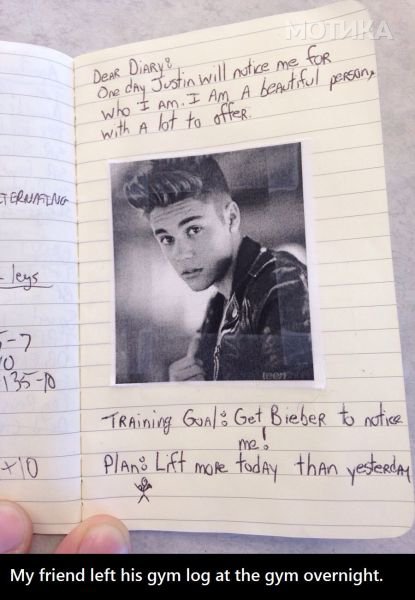 МОТИКА
DEAR DIARY:
One day Justin will notice me for
who I am. I am a beautiful person,
with a lot to offer.
TERNATING
legs
5-7
10
135-10
TRAining GOAl: Get Bieber to notice
me!
Plan: Lift more today than yesterday
x10
teen
My friend left his gym log at the gym overnight.